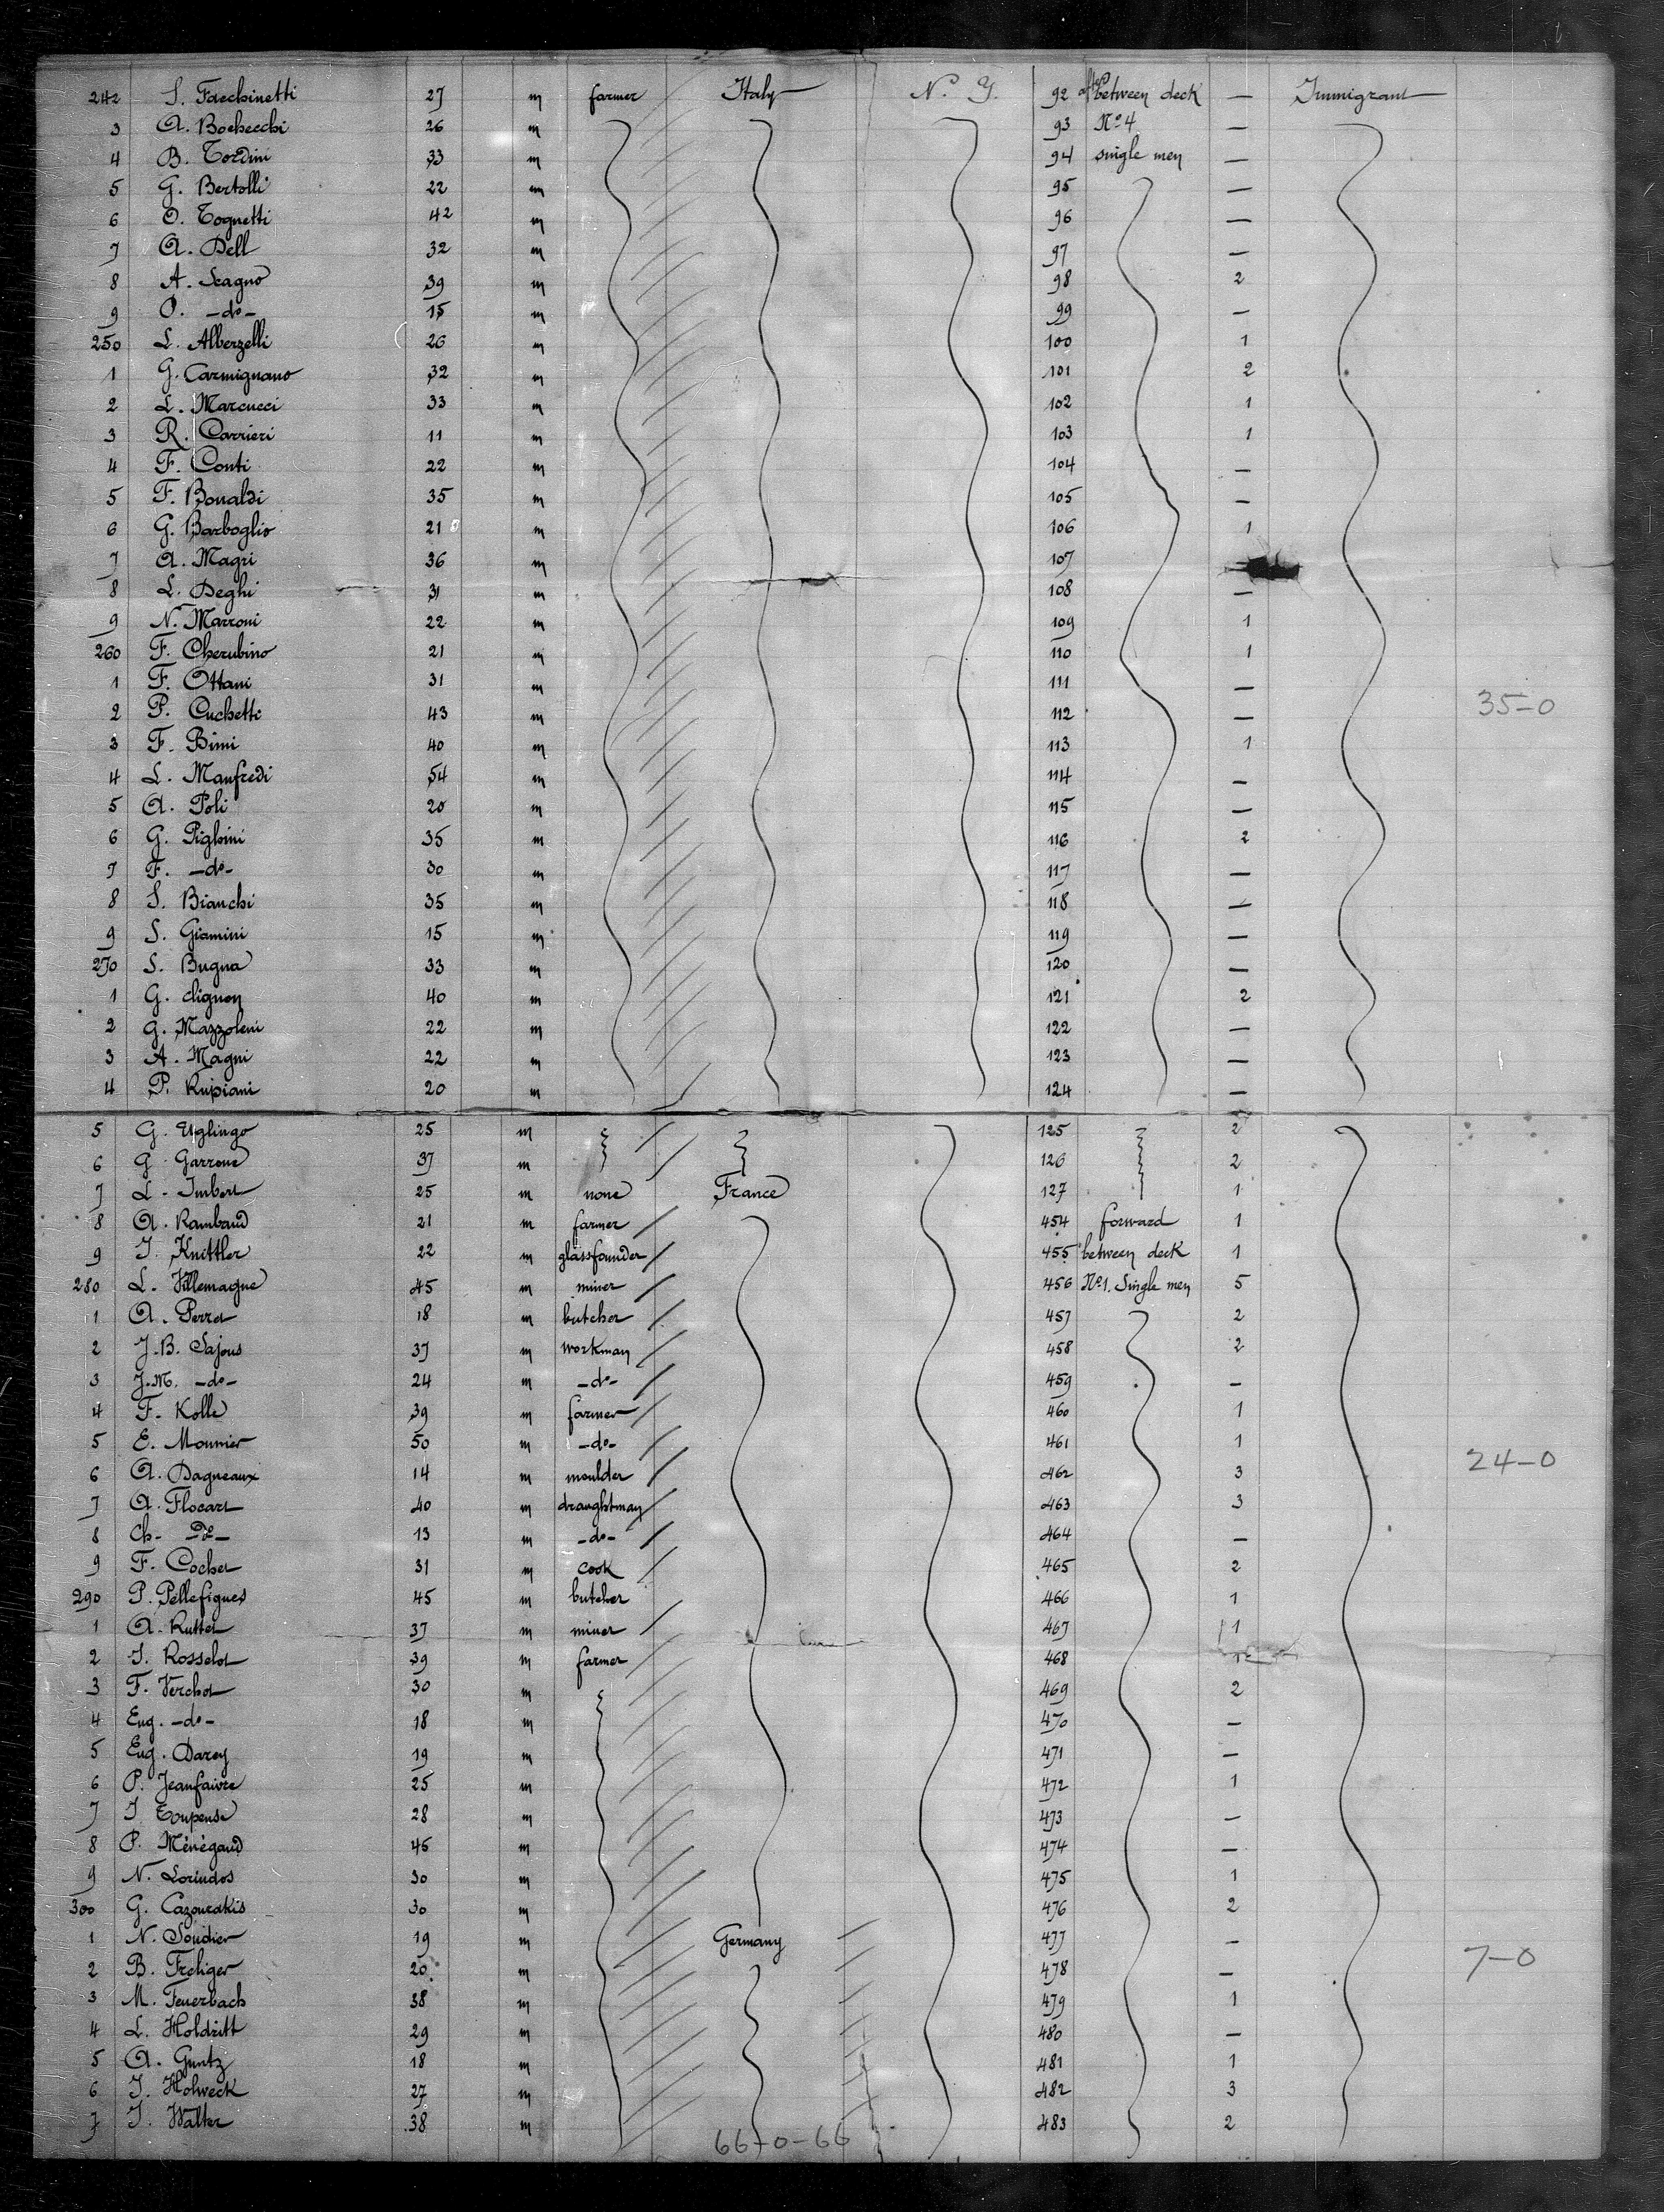 242 S. Facchinetti 27 m farmer Italy N. Y. 92 aft between deck — Immigrant
3 A. Bochecchi 26 m 93 No 4 —
4 B. Tordini 33 m 94 single men —
5 G. Bertolli 22 m 95 —
6 O. Tognetti 42 m 96 —
7 A. Dell 32 m 97 —
8 A. Scagno 39 m 98 2
9 O. -do- 15 m 99 —
250 L. Alberzelli 26 m 100 1
1 G. Carmignano 32 m 101 2
2 L. Marcucci 33 m 102 1
3 R. Carrieri 11 m 103 1
4 F. Conti 22 m 104 —
5 F. Bonaldi 35 m 105 —
6 G. Barboglio 21 m 106 1
7 A. Magri 36 m 107
8 L. Deghi 31 m 108 —
9 N. Marroni 22 m 109 1
260 F. Cherubino 21 m 110 1
1 F. Ottani 31 m 111 —
2 P. Cuchetti 43 m 112 — 35-0
3 F. Bimi 40 m 113 1
4 L. Manfredi 54 m 114 —
5 A. Poli 20 m 115 —
6 G. Pighini 35 m 116 2
7 F. -do- 30 m 117 —
8 S. Bianchi 35 m 118 —
9 S. Giamini 15 m 119 —
270 S. Bugna 33 m 120 —
1 G. clignon 40 m 121 2
2 G. Mazzoleni 22 m 122 —
3 A. Magni 22 m 123 —
4 P. Rupiani 20 m 124 —
5 G. Uglingo 25 m 125 2
6 G. Garrone 37 m 126 2
7 L. Imbert 25 m none France 127 1
8 A. Rambaud 21 m farmer 454 forward 1
9 J. Knittler 22 m glassfounder 455 between deck 1
280 L. Villemagne 45 m miner 456 No 1. Single men 5
1 A. Perrot 18 m butcher 457 2
2 J.B. Sajous 37 m workman 458 2
3 J.M. -do- 24 m -do- 459 —
4 F. Kolle 39 m farmer 460 1
5 E. Mounier 50 m -do- 461 1
6 A. Dagneaux 14 m moulder 462 3 24-0
7 A. Flocart 40 m draughtman 463 3
8 Ch- -do- 13 m -do- 464 —
9 F. Cochet 31 m cook 465 2
290 P. Pellefigues 45 m butcher 466 1
1 A. Ruttet 37 m miner 467 1
2 J. Rosselot 39 m farmer 468
3 F. Verchot 30 m 469 2
4 Eug. -do- 18 m 470 —
5 Eug. Darey 19 m 471 —
6 P. Jeanfaivre 25 m 472 1
7 J. Toupense 28 m 473 —
8 P. Ménégaud 45 m 474 —
9 N. Lorindos 30 m 475 1
300 G. Cazourakis 30 m 476 2
1 N. Soudier 19 m Germany 477 —
2 B. Freliger 20 m 478 — 7-0
3 M. Feuerbach 38 m 479 1
4 L. Holdritt 29 m 480 —
5 A. Guntz 18 m 481 1
6 J. Holweck 27 m 482 3
7 J. Walter 38 m 483 2
66-0-66